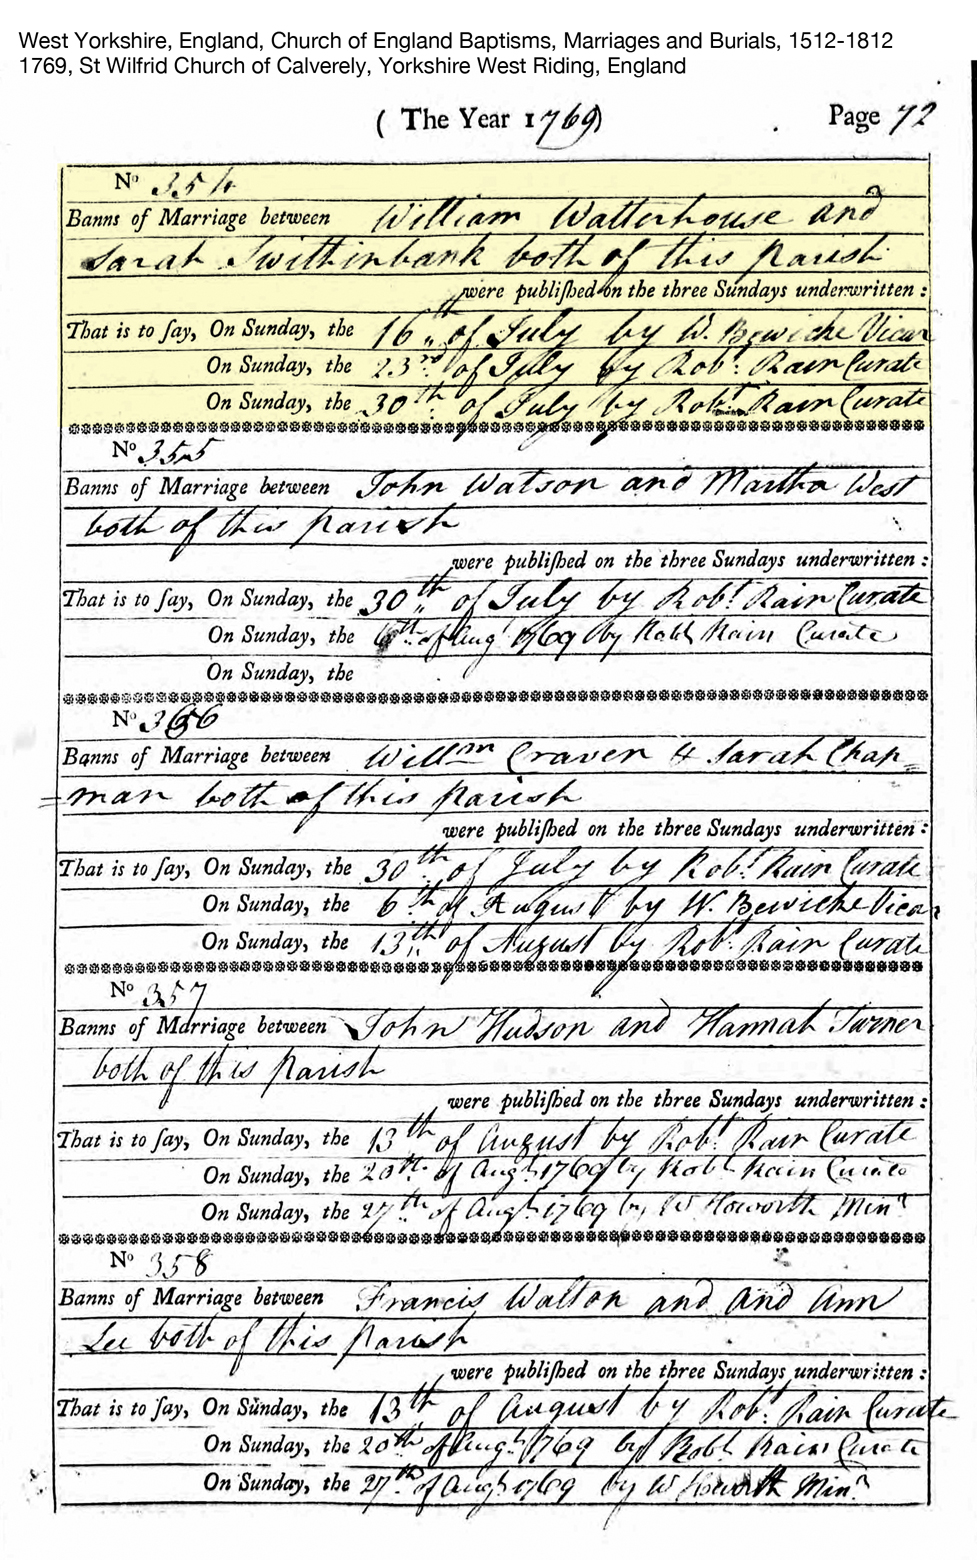 West Yorkshire, England, Church of England Baptisms, Marriages and Burials, 1512-1812
1769, St Wilfrid Church of Calverely, Yorkshire West Riding, England
( The Year 1769) Page 72
No 354
Banns of Marriage between William Watterhouse and
Sarah Swithinbank both of this Parish
were publiſhed on the three Sundays underwritten :
That is to ſay, On Sunday, the 16th of July by W. Bewicke Vicar
On Sunday, the 23rd of July by Robt. Rain Curate
On Sunday, the 30th of July by Robt. Rain Curate
No 355
Banns of Marriage between John Watson and Martha West
both of this Parish
were publiſhed on the three Sundays underwritten :
That is to ſay, On Sunday, the 30th of July by Robt. Rain Curate
On Sunday, the 6th of Augt 1769 by Robt Rain Curate
On Sunday, the
No 356
Banns of Marriage between Willm Craven & Sarah Chap=
=man both of this Parish
were publiſhed on the three Sundays underwritten :
That is to ſay, On Sunday, the 30th of July by Robt. Rain Curate
On Sunday, the 6th of August by W. Bewicke Vicar
On Sunday, the 13th of August by Robt. Rain Curate
No 357
Banns of Marriage between John Hudson and Hannah Turner
both of this Parish
were publiſhed on the three Sundays underwritten :
That is to ſay, On Sunday, the 13th of August by Robt. Rain Curate
On Sunday, the 20th of Augt. 1769 by Robt Rain Curate
On Sunday, the 27th of Augt. 1769 by W Howorth Minr
No 358
Banns of Marriage between Francis Walton and and Ann
Lee both of this Parish
were publiſhed on the three Sundays underwritten :
That is to ſay, On Sunday, the 13th of August by Robt. Rain Curate
On Sunday, the 20th of Augt. 1769 by Robt Rain Curate
On Sunday, the 27th of Augt 1769 by W Howorth Minr